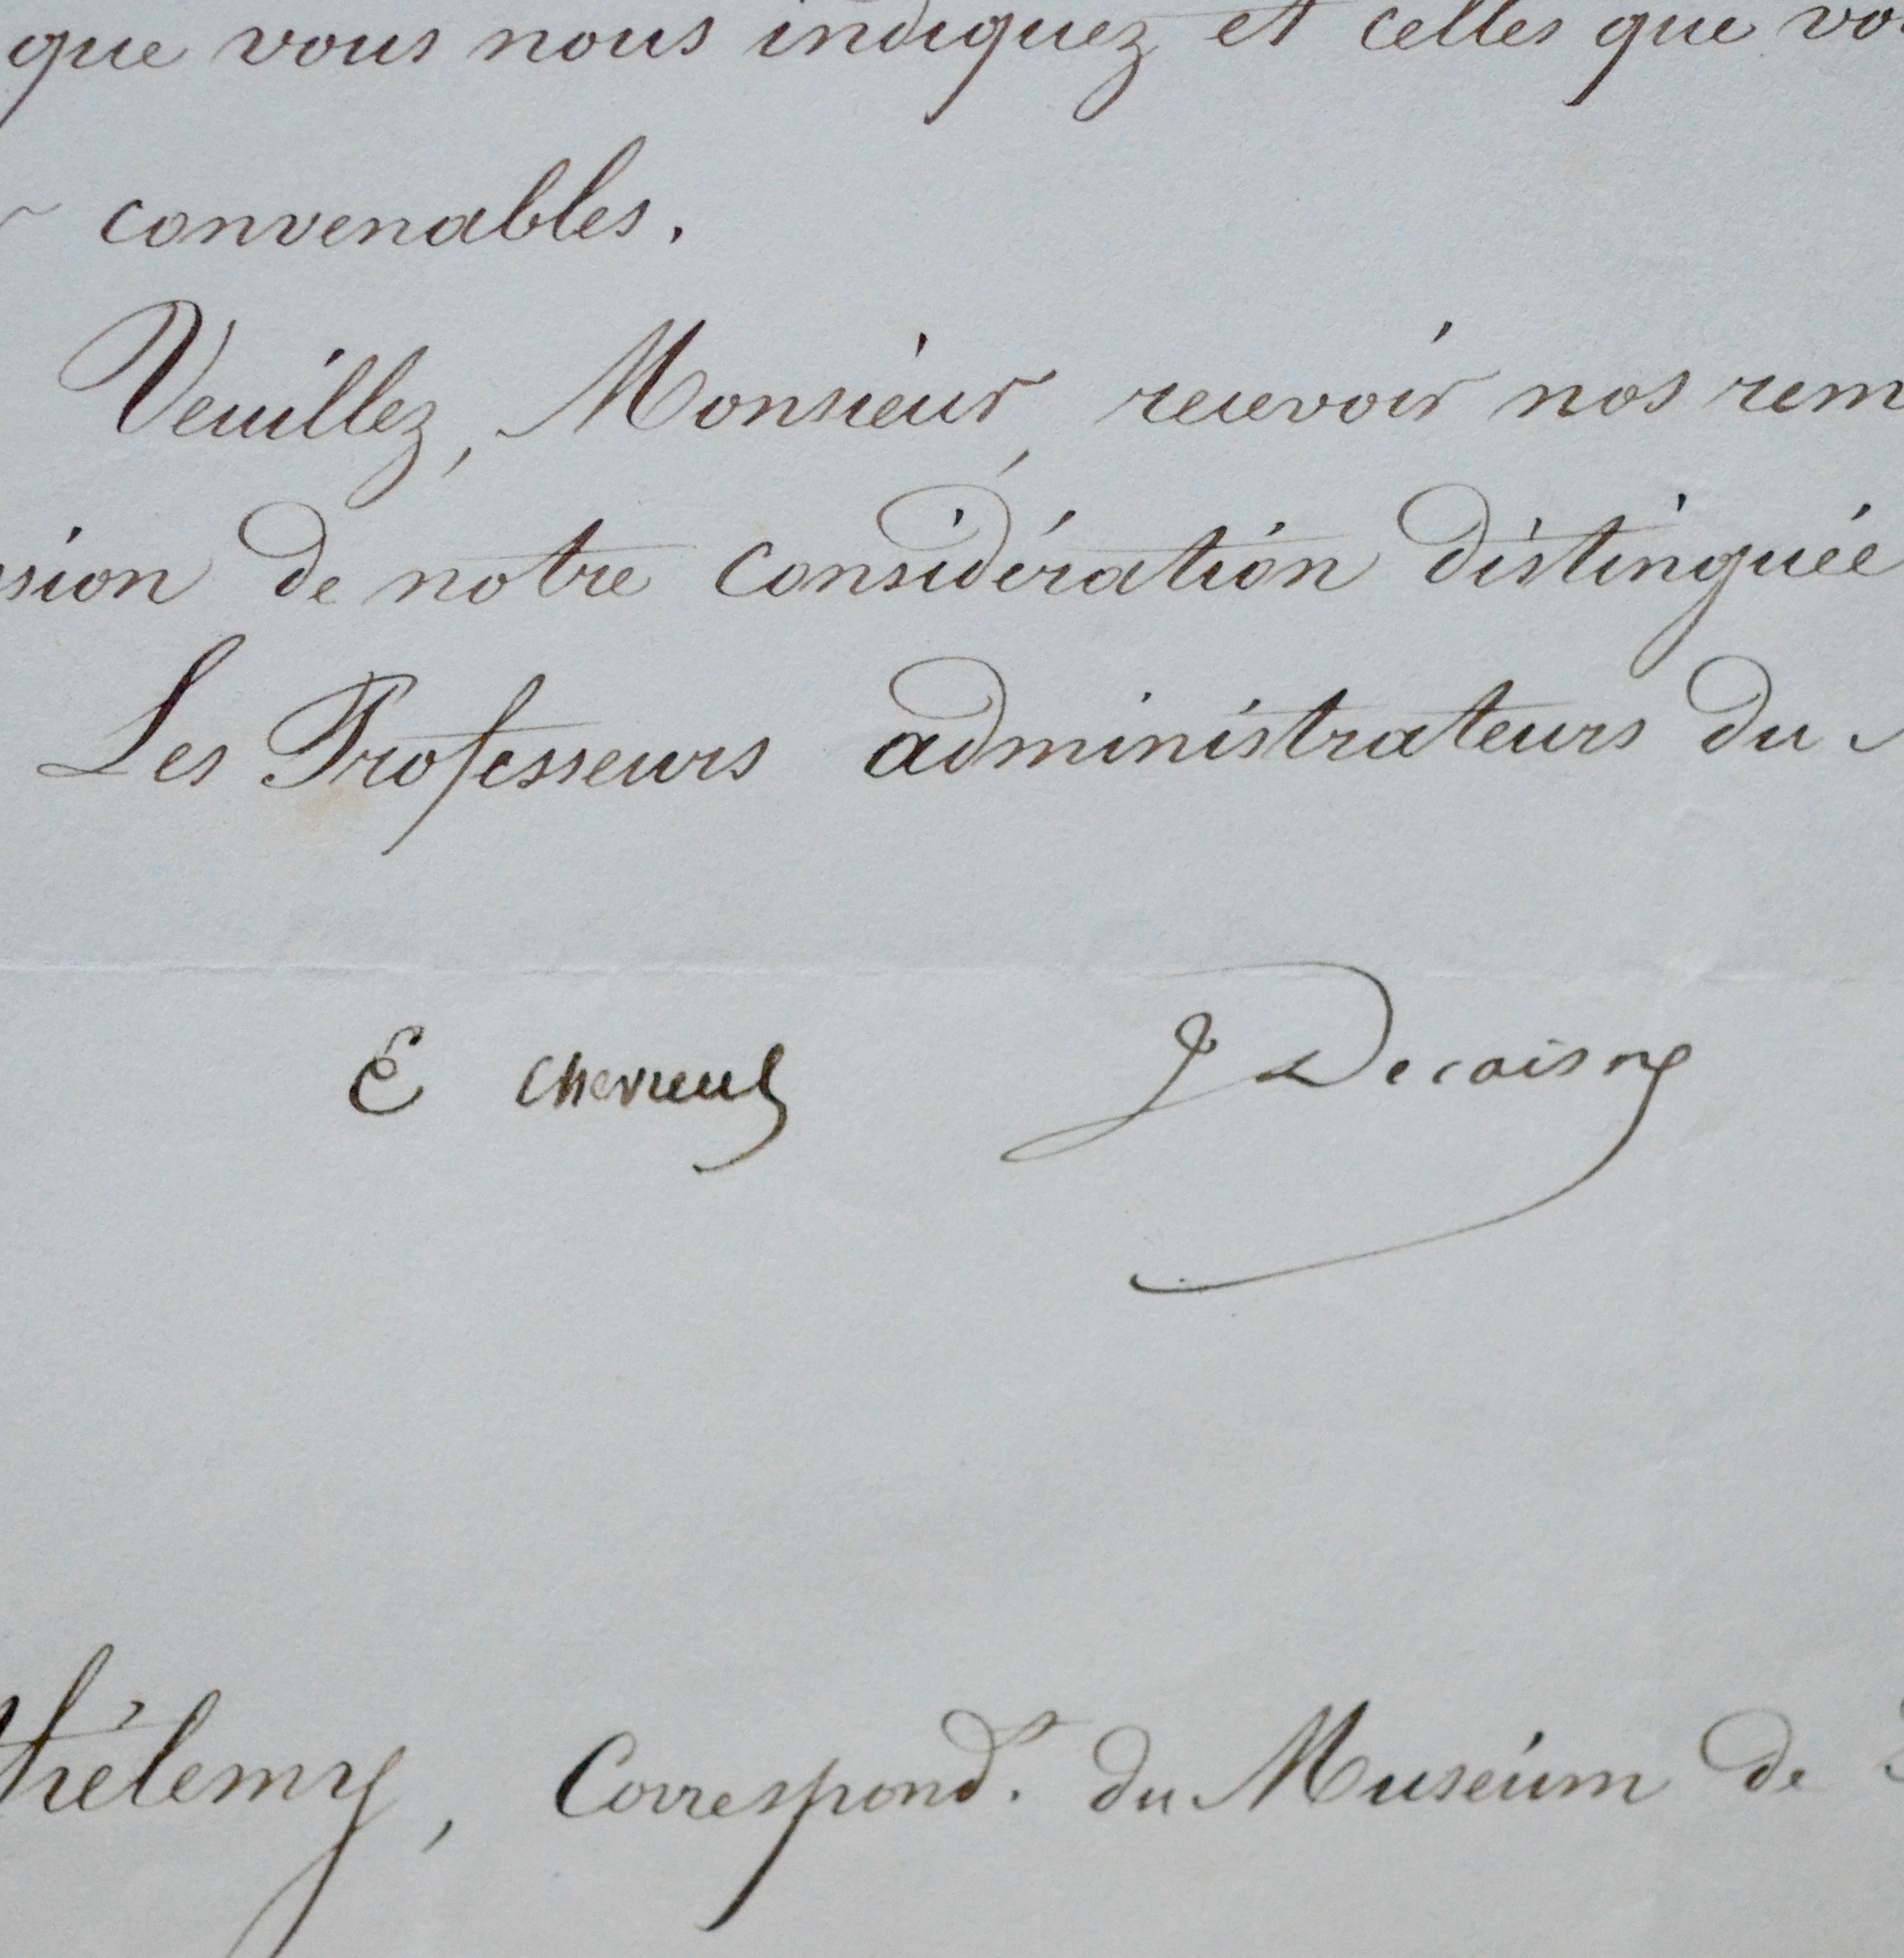 que vous nous indiquez et celles que vo
convenables.
Veuillez, Monsieur, recevoir nos rem
sion de notre considération distinguée
Les Professeurs administrateurs du
E Chevreul J Decaisne
thélemy, Correspond.t du Muséum de